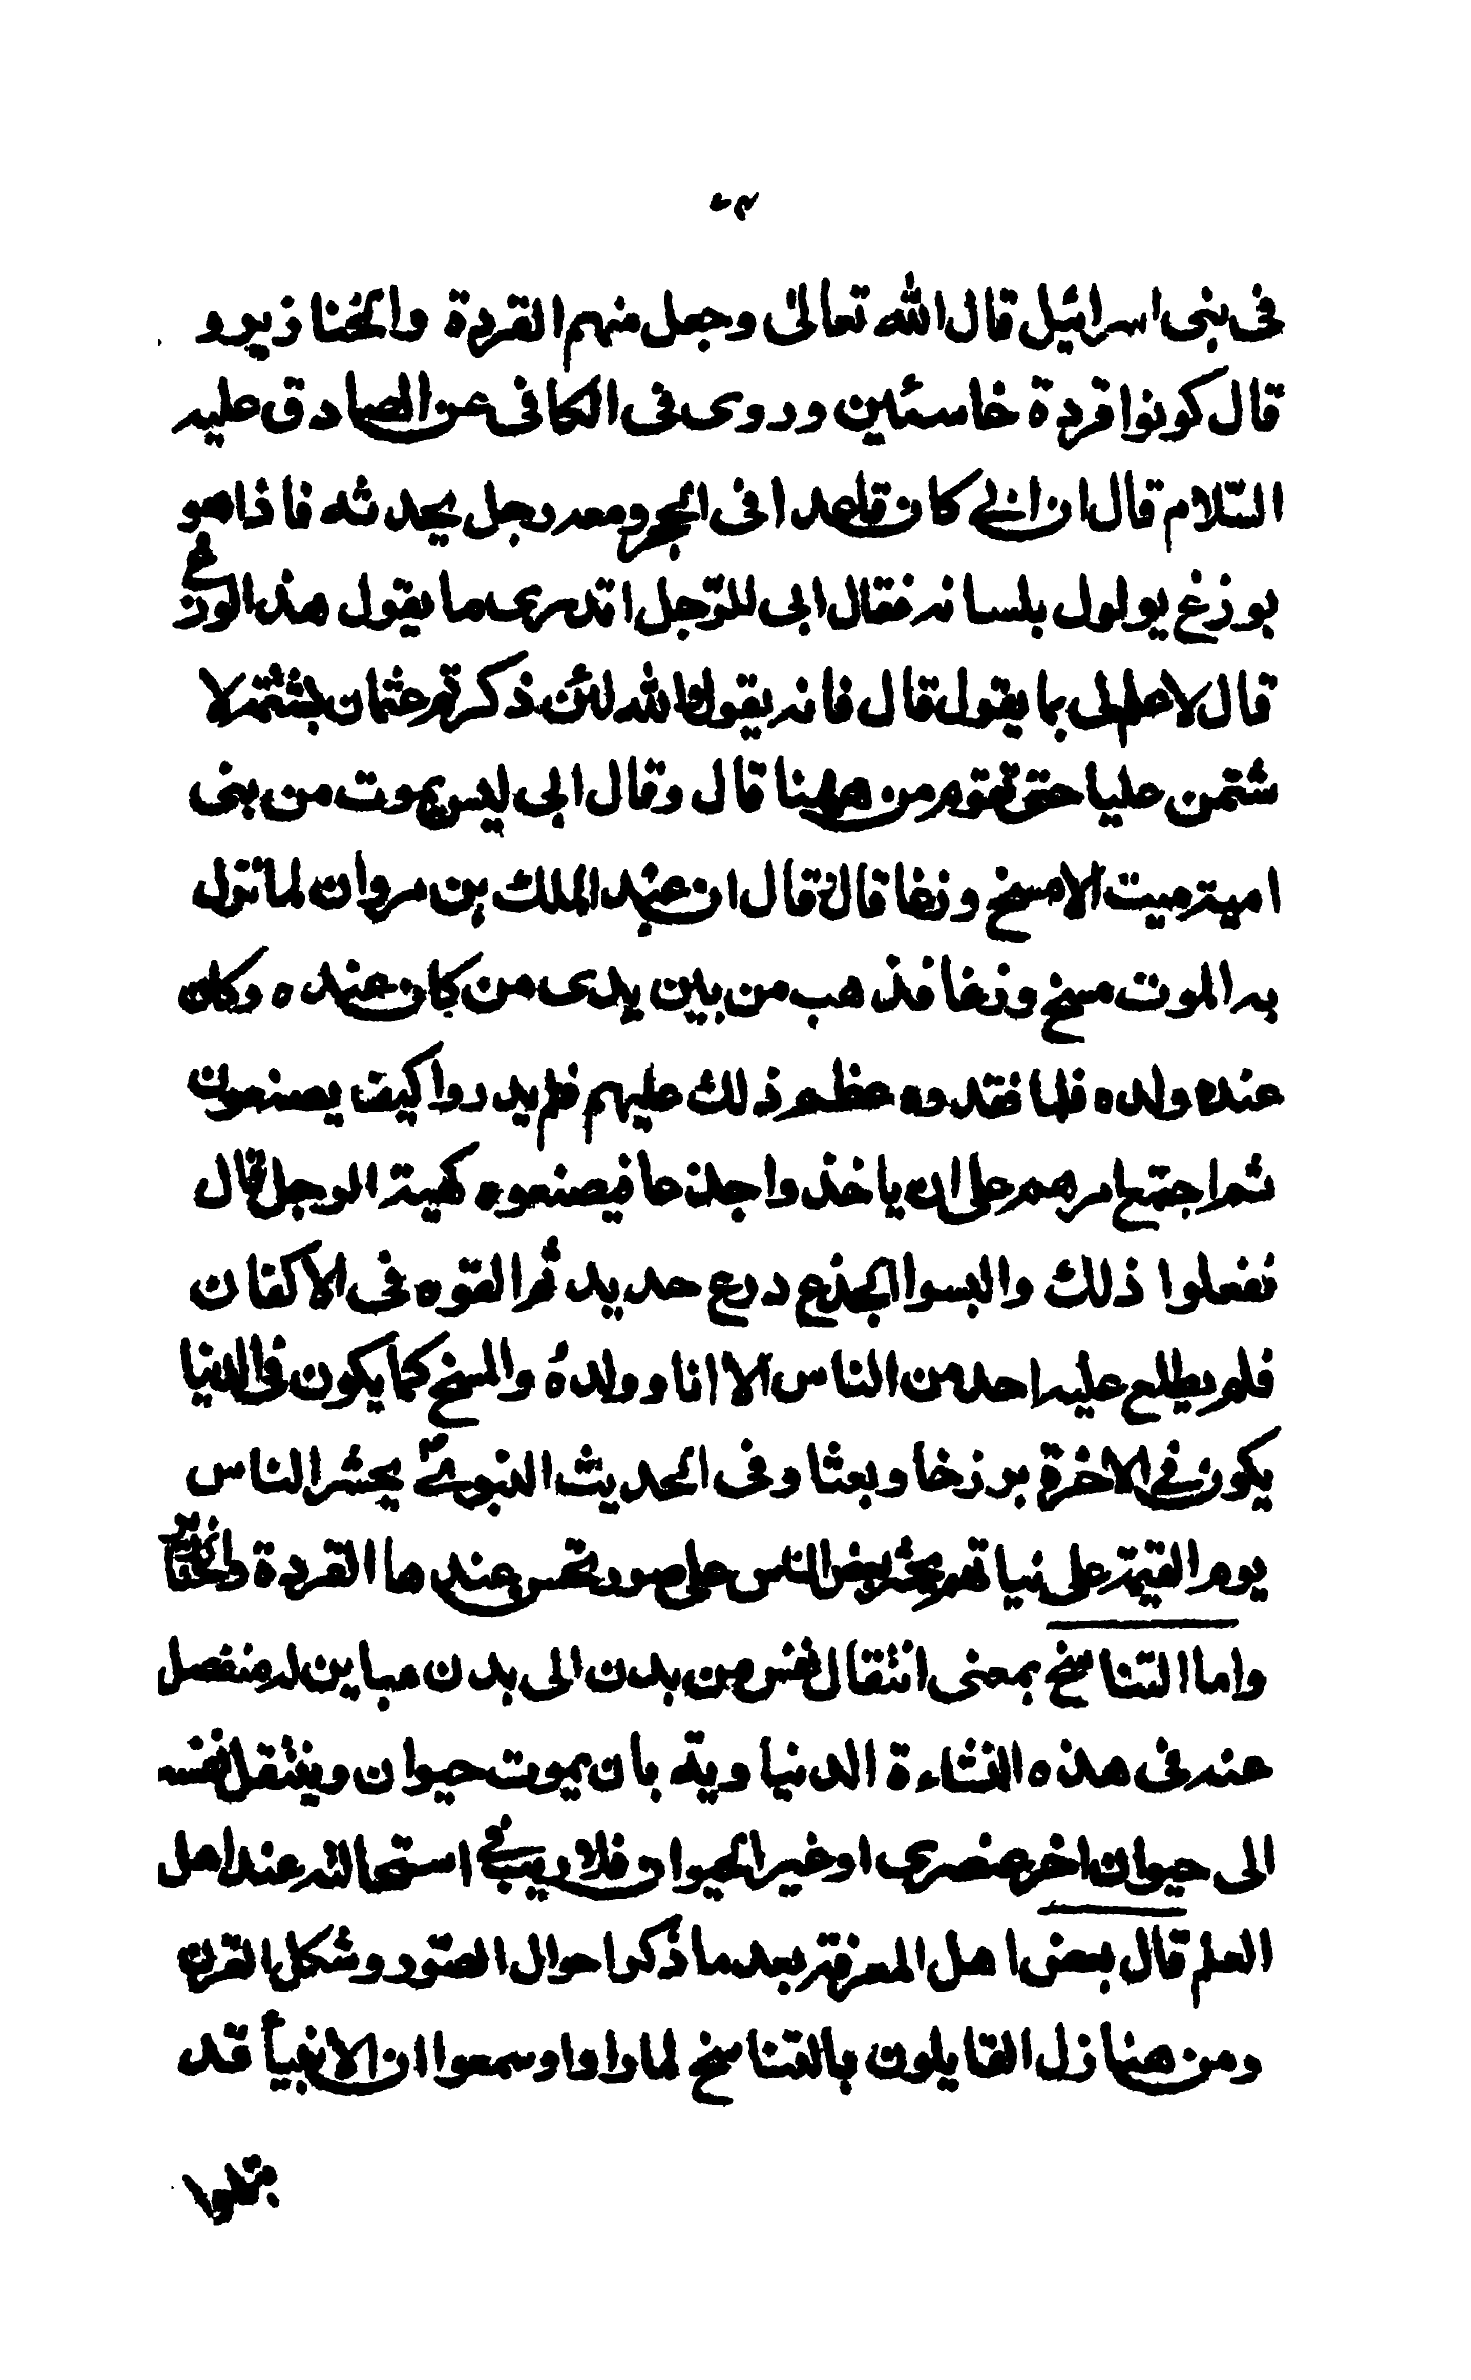 في بنى اسرائيل قال الله تعالىٰ وجعل منهم القردة والخنازير و
قال كونوا قردة خاسئين وروى فى الكافى عن الصادق عليه
السّلام قال ان ابي كان قاعدا فى الحجر ومعه رجل يحدثه فاذا هو
بوزغ يولول بلسانه فقال ابى للرّجل اتدرى ما يقول هذا الوزغ
قال لا علم لى بما يقول قال فانه يقول والله لئن ذكرتم عثمان بشتمة لا
شتمن عليا حتى تقوم من ههنا قال وقال ابى ليس يموت من بنى
امية ميت الا مسخ وزغا قال قال ان عبد الملك بن مروان لما نزل
به الموت مسخ وزغا فذهب من بين يدى من كان عنده وكان
عنده ولده فلما فقدوه عظم ذلك عليهم فلم يدروا كيف يصنعون
ثم اجتمع امرهم على ان ياخذوا جذعا فيصنعوه كهيئة الرجل قال
ففعلوا ذلك والبسوا الجذع درع حديد ثم القوه فى الاكفان
فلم يطلع عليه احد من الناس الا انا وولدهُ والمسخ كما يكون فى الدنيا
يكون في الاخرة برزخا وبعثا وفى الحديث النبويّ يحشر الناس
يوم القيمة على نياتهم يحشر بعض الناس على صور تحسن عندها القردة والخنازير
واما التناسخ بمعنى انتقال نفس من بدن الى بدن مباين له منفصل
عنه فى هذه النشاءة الدنياوية بان يموت حيوان وينتقل نفسه
الى حيوان اخر عنصري او غير الحيوان فلا ريب في استحالته عند اهل
العلم قال بعض اهل المعرفة بعد ما ذكر احوال الصّور وشكل القرن
ومن هنا زل القايلون بالتناسخ لما راوا وسمعوا ان الانبياء قد